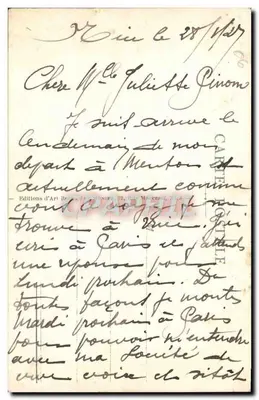 Nice le 28/1/27
Chere Mlle Juliette
Je suis arrivé le
lendemain de mon
départ à Menton et
actuellement comme
vous je me
trouve à Nice. j'ai
à Paris et j'attend
une reponse pour
lundi prochain. De
toutes façons je montes
mardi prochain à Paris
pour pouvoir m'entendre
avec ma Société de
vive voix et sitôt
Editions d'Art
CARTE